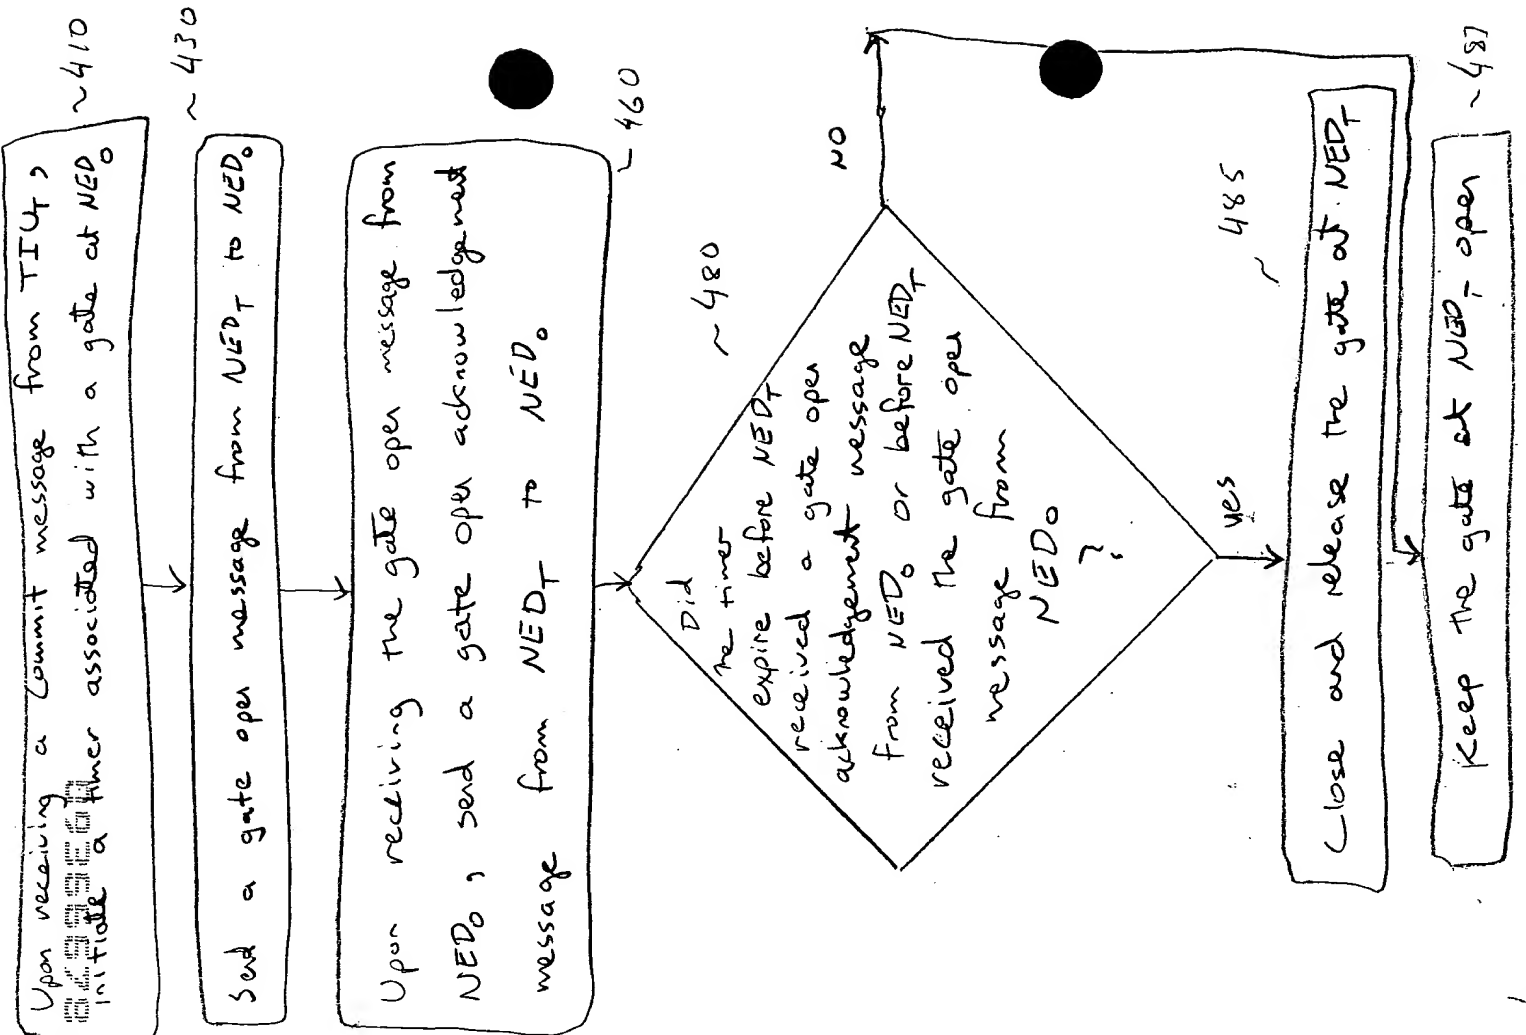 Upon receiving a Commit message from TIU_T,
initiate a timer associated with a gate at NED_O
~410
Send a gate open message from NED_T to NED_O
~430
Upon receiving the gate open message from
NED_O, send a gate open acknowledgement
message from NED_T to NED_O
~460
Did
the timer
expire before NED_T
received a gate open
acknowledgement message
from NED_O or before NED_T
received the gate open
message from
NED_O
?
~480
NO
yes
Close and release the gate at NED_T
~485
Keep the gate at NED_T open
~487